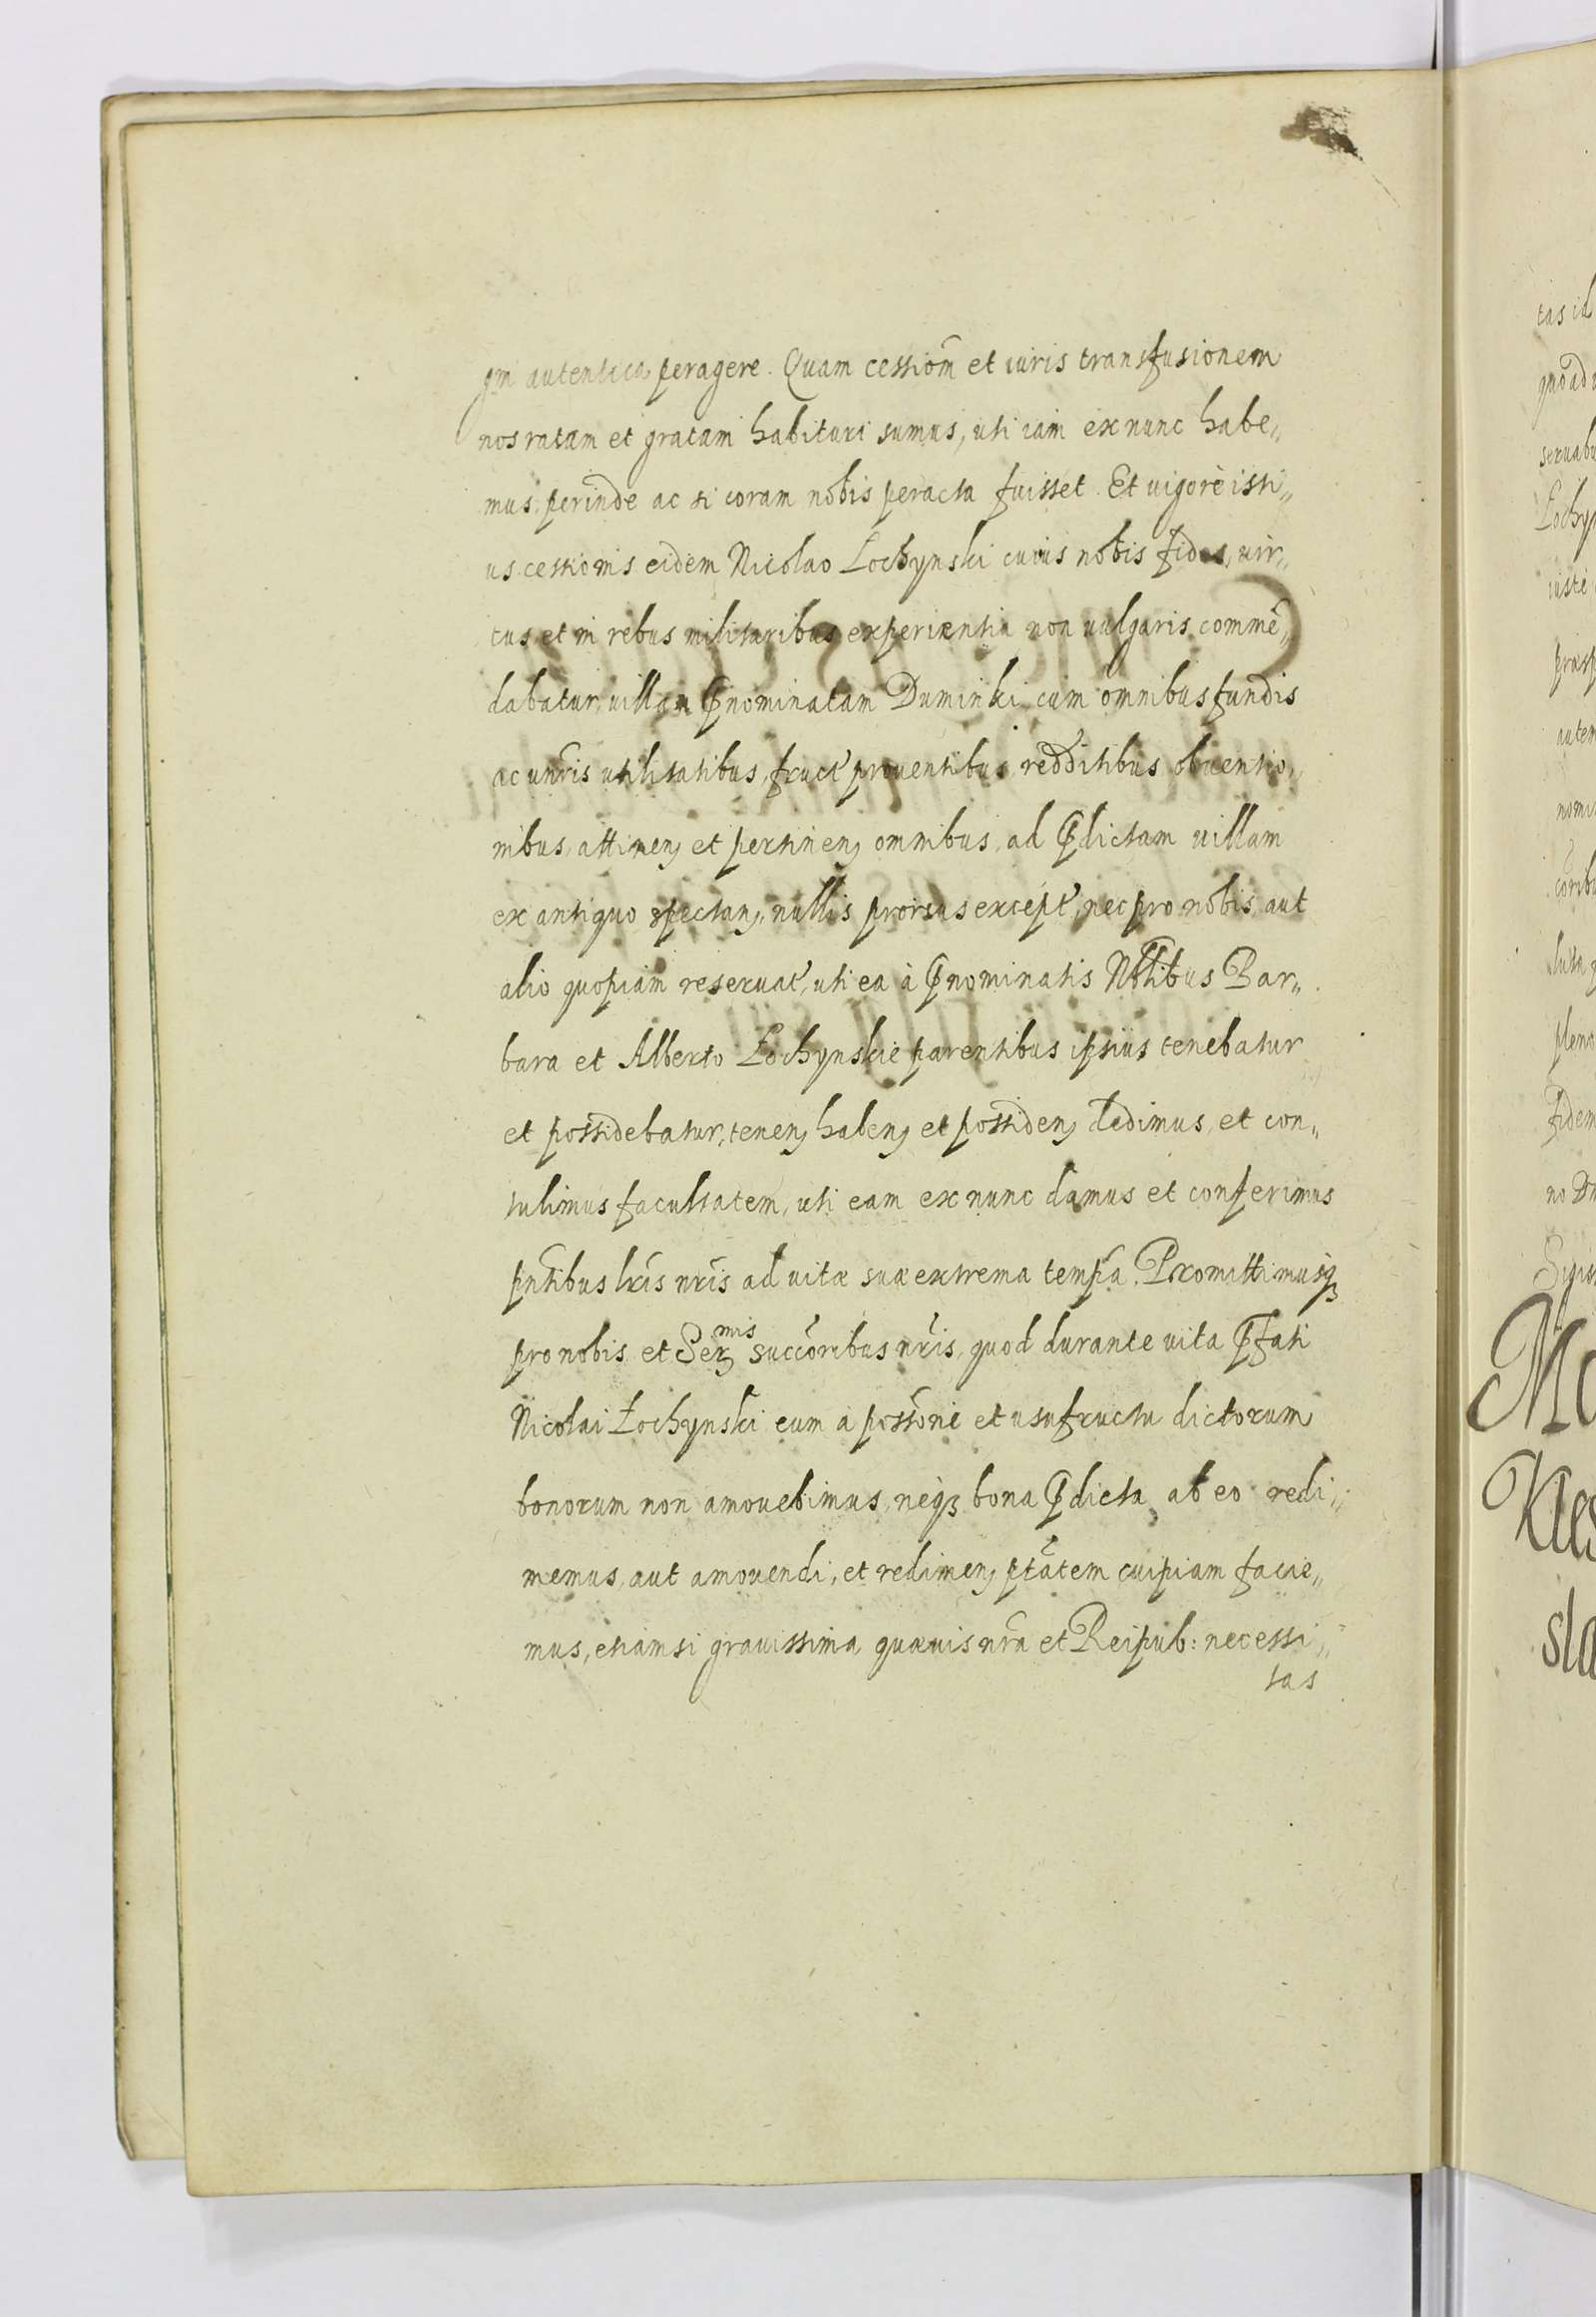 autentica peragere. Quam cessiom̃ et iuris transfusionem
nos ratam et gratam habituri sumus, uti iam ex nunc habe„
mus, perinde ac si coram nobis peracta fuisset. Et uigore isti„
us cessionis eidem Nicolao Łochynski cuius nobis fides, uir„
tus et in rebus militaribus experientia non uulgaris commẽ„
dabatur, uillam p̃nominatam Duminki cum omnibus fundis
ac uñris utilitatibus, fruct' prouentibus, redditibus obuentio„
nibus, attinen̨ et pertinen̨ omnibus, ad p̃dictam uillam
ex antiquo spectan̨, nullis prorsus except', nec pro nobis aut
alio quopiam reseruat', uti ea à p̃nominatis Nõlibus Bar„
bara et Alberto Łochynskie parentibus ipsius tenebatur
et possidebatur, tenen̨ haben̨ et possiden̨ dedimus, et con„
tulimus facultatem, uti eam ex nunc damus et conferimus
pñtibus lr̃is nr̃is ad uitæ suæ extrema temp̃a. Promittimusq̨
pro nobis et Serᵐⁱˢ succõribus nr̃is, quod durante uita p̃fati
Nicolai Łochynski eum à possõne et usufructu dictorum
bonorum non amouebimus, neq̨ bona p̃dicta ab eo redi„
memus, aut amouendi, et redimen̨ ptãtem cuipiam facie„
mus, etiamsi grauissima quæuis nr̃a et Reipub: necessi„
tas
tas id
Łochyn
iuste
nomi
pleno
fidem
Sigis
Kles